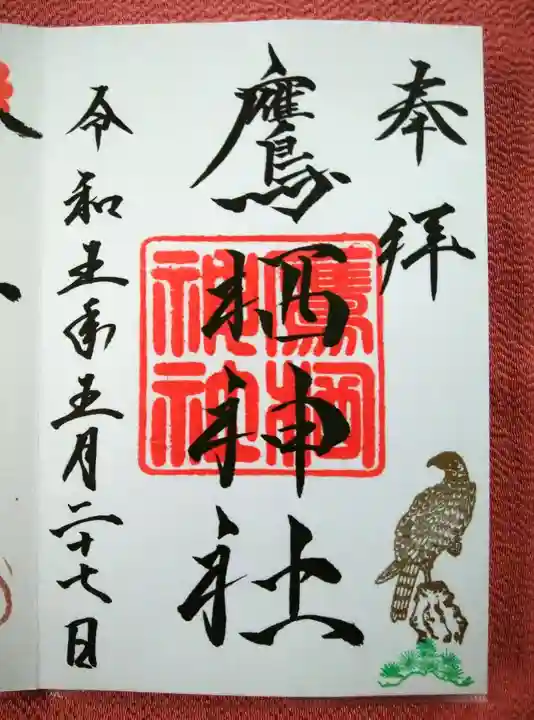 奉拝
鷹栖神社
鷹栖神社
令和五年五月二十七日